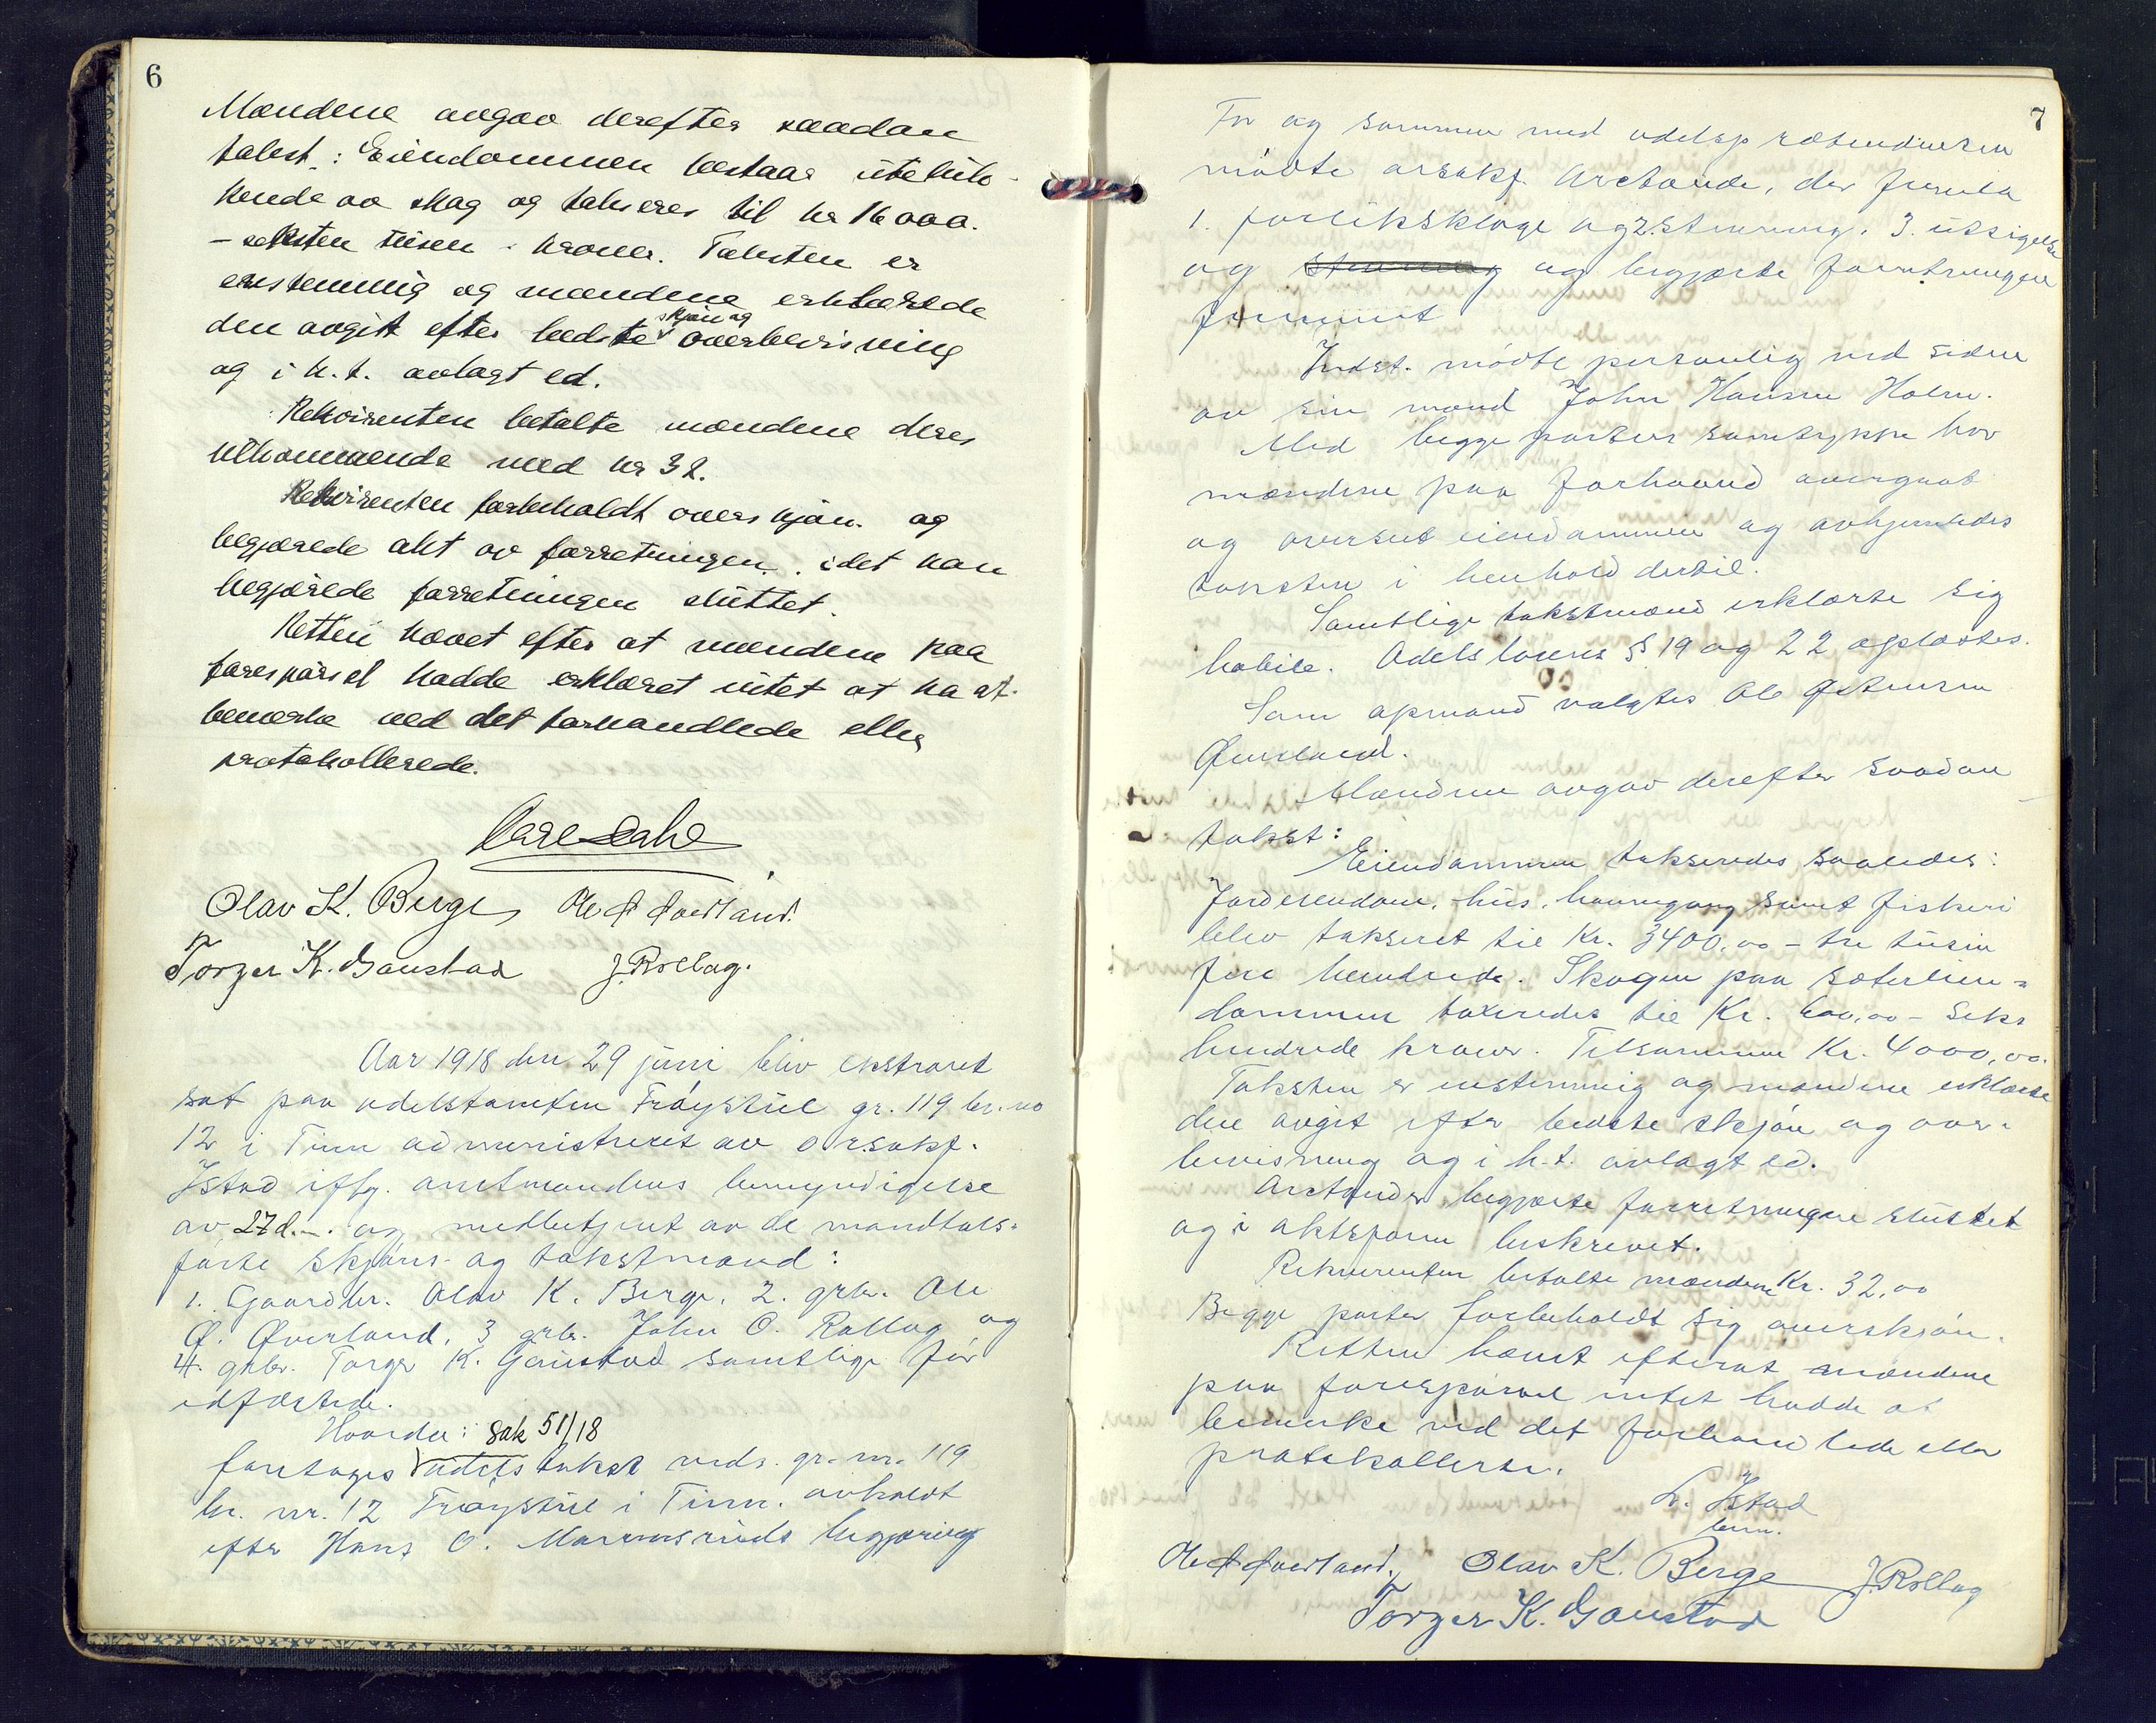 6
Mændene avgav derefter saadan
takst: Eiendommen bestaar uteluk-
kende av skog og takseres til kr 16000.
- seksten tusen - kroner. Taksten er
enstemmig og mændene erklærede
den avgit efter bedste skjøn og overbevisning
og i h.t. avlagt ed.
Rekvirenten betalte mændene deres
tilkommende med kr 32.
Rekvirenten forbeholdt overskjøn og
begjærede akt av forretningen, idet han
begjærede forretningen sluttet.
Retten hævet efter at mændene paa
forespørsel hadde erklæret intet at ha at
bemerke ved det forhandlede eller
protokollerede.
Olav K. Berge Ole Ø Øverland.
Torger K. Gaustad J. Rollag.
Aar 1918 den 29 juni blev ekstraret
sat paa odelstomten Frøystul gr. 119 br. no
12 i Tinn administreret av o.r.sakf.
Ystad iflg. amtmandens bemyndigelse
av 27 d.-. og medbetjent av de mandtals-
førte skjøns- og takstmænd:
1. Gaardbr. Olav K. Berge, 2. grbr. Ole
Ø. Øverland, 3 grbr. John O. Rollag og
4. grbr. Torger K. Gaustad samtlige før
edfæstede.
Hvorda: sak 51/18
foretoges odelstakst vedr. gr. nr. 119
br. nr. 12 Frøystul i Tinn. avholdt
efter Hans O. Marumsruds begjæring
7
For og sammen med odelsprætendenten
mødte o.r.sakf. Arctander, der fremla
1. forliksklage og 2. stevning. 3. utsigelse
og og begjærte forretningen
fremmet
Indst. mødte personlig ved siden
av sin mand John Hansen Holm.
Med begge parters samtykke har
mændene paa forhaand overgaat
og overset eiendommen og avhjemledes
taksten i henhold dertil.
Samtlige takstmænd erklærte sig
habile. Odelslovens §§ 19 og 22 oplæstes.
Som opmand valgtes Ole Østensen
Øverland.
Mændene avgav derefter saadan
takst:
Eiendommen takseredes saaledes:
Jordeiendom, hus, havnegang samt fiskeri
blev takseret til Kr. 3400,00 - tre tusin
fire hundrede. Skogen paa sætereien-
dommen taxeredes til Kr. 600,00 - seks
hundrede kroner. Tilsammen Kr. 4000,00.
Taksten er enstemmig og mændene erklærte
den avgit efter bedste skjøn og over-
bevisning og i h.t. avlagt ed.
Arctander begjærte forretningen sluttet
og i aktsform beskrevet.
Rekvirenten betalte mændene Kr. 32,00
Begge parter forbeholdt sig overskjøn.
Retten hævet efterat mændene
paa forespørsel intet hadde at
bemerke ved det forhandlede eller
protokollerte.
Ystad
bem.
Ole Ø Øverland. Olav K. Berge J. Rollag
Torger K. Gaustad